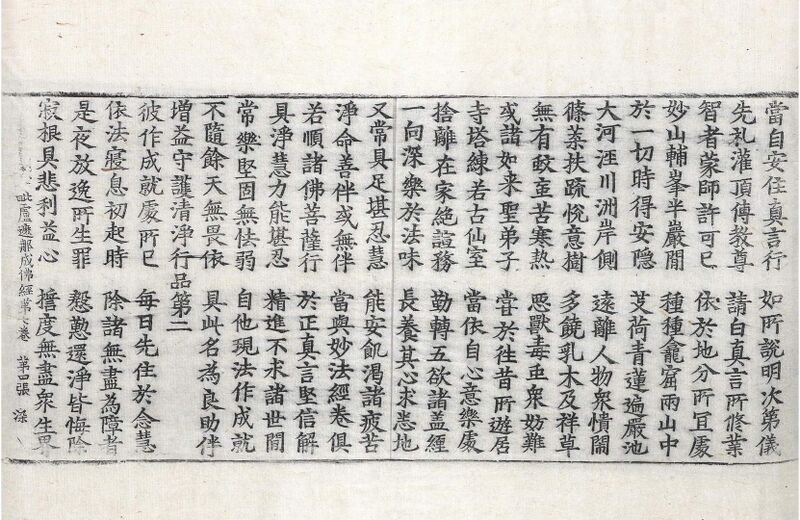 當自安住真言行　如所說明次第儀
先礼灌頂傳教尊　請白真言所修業
智者蒙師許可已　依於地分所宜處
妙山輔峯半巖間　種種龕窟兩山中
於一切時得安隱　芰荷青蓮遍嚴池
大河涇川洲岸側　遠離人物衆憒鬧
篠葉扶疏悅意樹　多饒乳木及祥草
無有蚊虻苦寒熱　惡獸毒虫衆妨難
或諸如来聖弟子　嘗於往昔所遊居
寺塔練若古仙室　當依自心意樂處
捨離在家絶諠務　勤轉五欲諸盖經
一向深樂於法味　長養其心求悉地
又常具足堪忍慧　能安飢渴諸疲苦
淨命善伴或無伴　當與妙法經卷俱
若順諸佛菩薩行　於正真言堅信解
具淨慧力能堪忍　精進不求諸世間
常樂堅固無怯弱　自他現法作成就
不隨餘天無畏依　具此名為良助伴
增益守護清淨行品第二
彼作成就處所已　每日先住於念慧
依法寢息初起時　除諸無盡為障者
是夜放逸所生罪　慇懃還淨皆悔除
寂根具悲利益心　誓度無盡衆生界
毗盧遮那成佛經第七卷　第四張　深